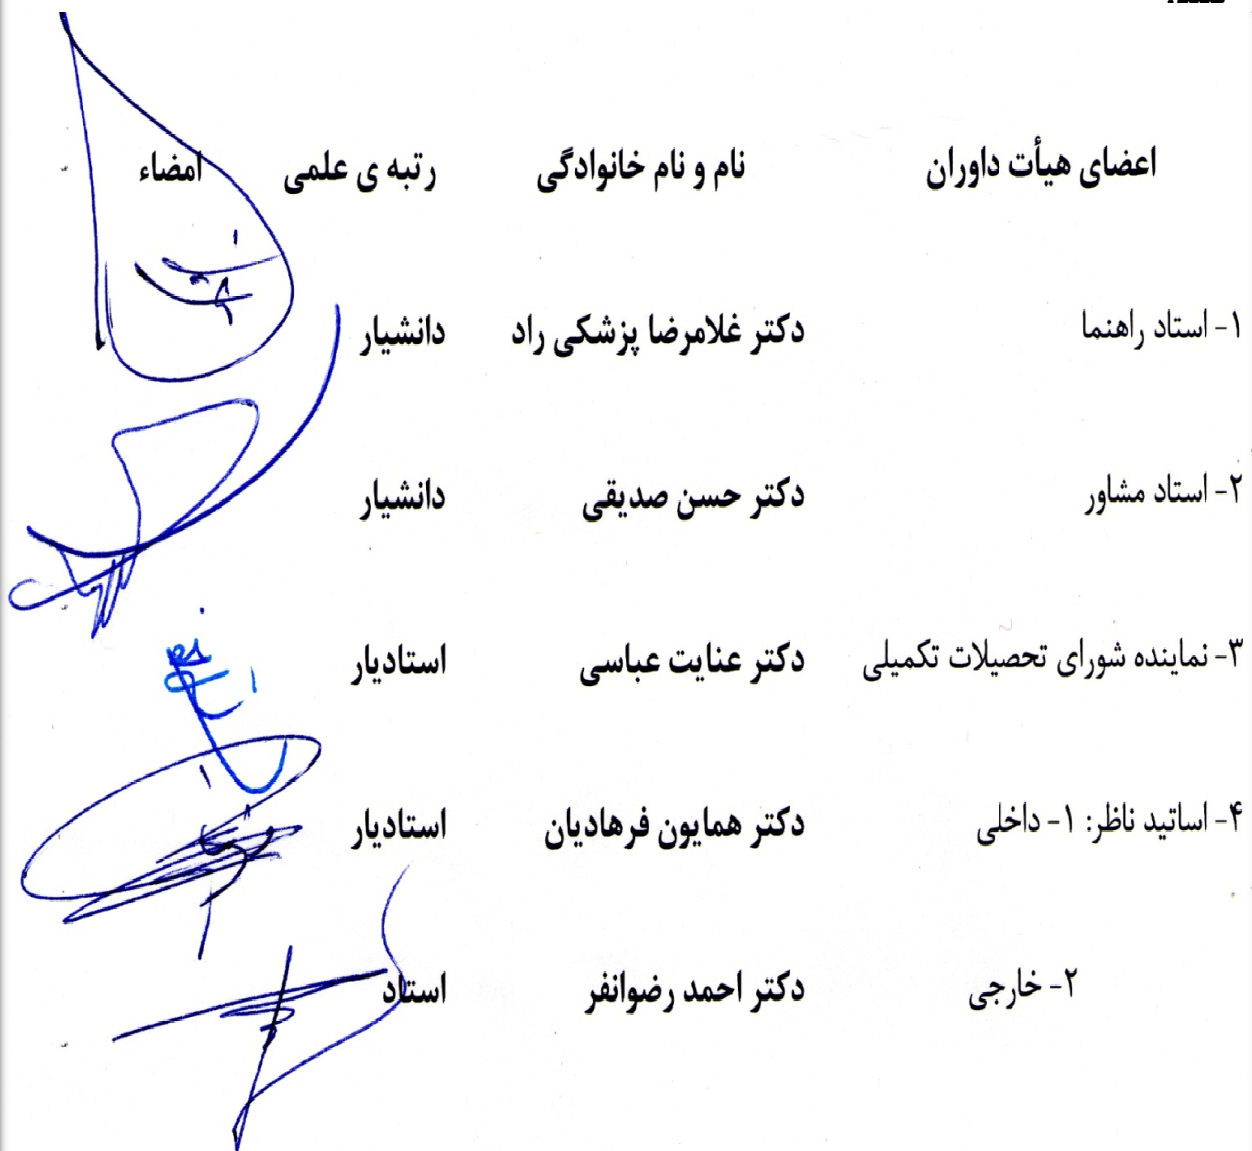 اعضای هیأت داوران نام و نام خانوادگی رتبه ی علمی امضاء
۱- استاد راهنما دکتر غلامرضا پزشکی راد دانشیار
۲- استاد مشاور دکتر حسن صدیقی دانشیار
۳- نماینده شورای تحصیلات تکمیلی دکتر عنایت عباسی استادیار
۴- اساتید ناظر: ۱- داخلی دکتر همایون فرهادیان استادیار
۲- خارجی دکتر احمد رضوانفر استاد